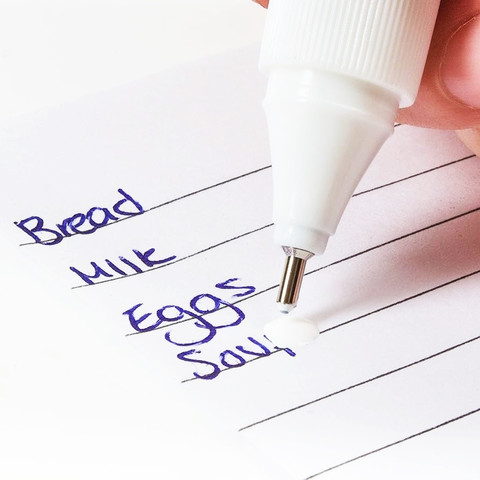 Bread
Milk
Eggs